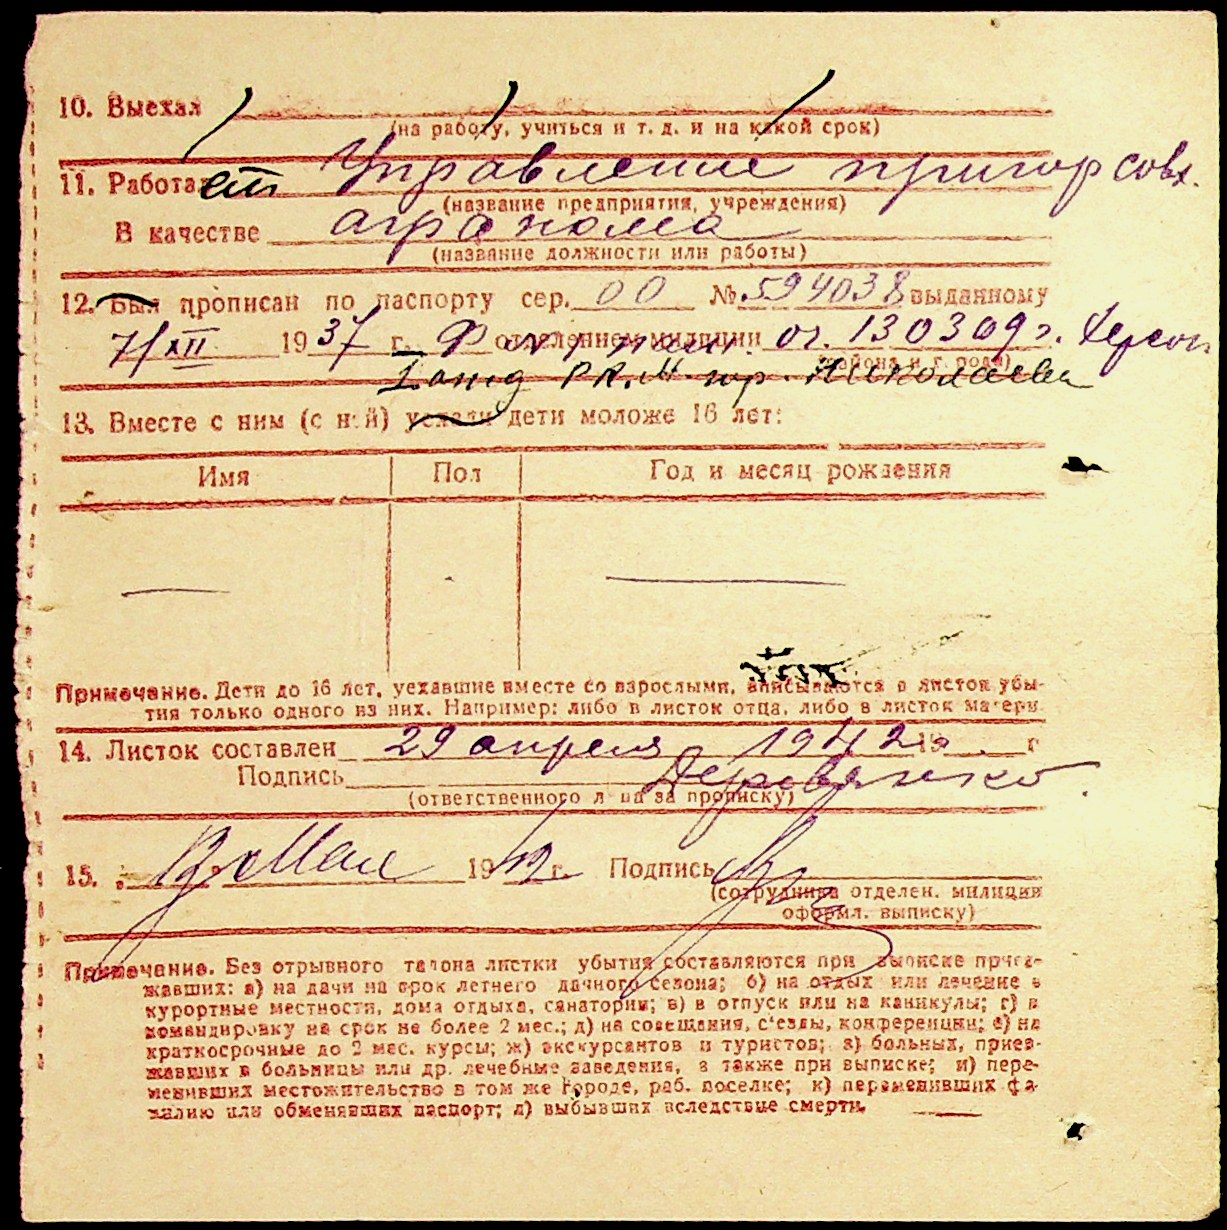 10. Выехал
(на работу, учиться и т. д. и на какой срок)
11. Работает Управление пригор совх.
(название предприятия, учреждения)
В качестве агронома
(название должности или работы)
12. Был прописан по паспорту сер. 00 № 594038 выданному
7/XII 1937 г. отделением милиции 130309 г. Херсон
(района и города)
гор. Николаева
13. Вместе с ним (с ней) уехали дети моложе 16 лет:
Имя Пол Год и месяц рождения
Примечание. Дети до 16 лет, уехавшие вместе со взрослыми, вписываются в листок убы-
тия только одного из них. Например: либо в листок отца, либо в листок матери
14. Листок составлен 29 апреля 1942 г
Подпись Деревянко
(ответственного лица за прописку)
15. Мая 1942 г. Подпись
(сотрудника отделен. милиции
оформл. выписку)
Примечание. Без отрывного талона листки убытия составляются при выписке приез-
жавших: а) на дачи на срок летнего дачного сезона; б) на отдых или лечение в
курортные местности, дома отдыха, санатории; в) в отпуск или на каникулы; г) в
командировку на срок не более 2 мес.; д) на совещания, с'езды, конференции; е) на
краткосрочные до 2 мес. курсы; ж) экскурсантов и туристов; з) больных, приез-
жавших в больницы или др. лечебные заведения, а также при выписке; и) пере-
менивших местожительство в том же городе, раб. поселке; к) переменивших фа-
милию или обменявших паспорт; л) выбывших вследствие смерти.